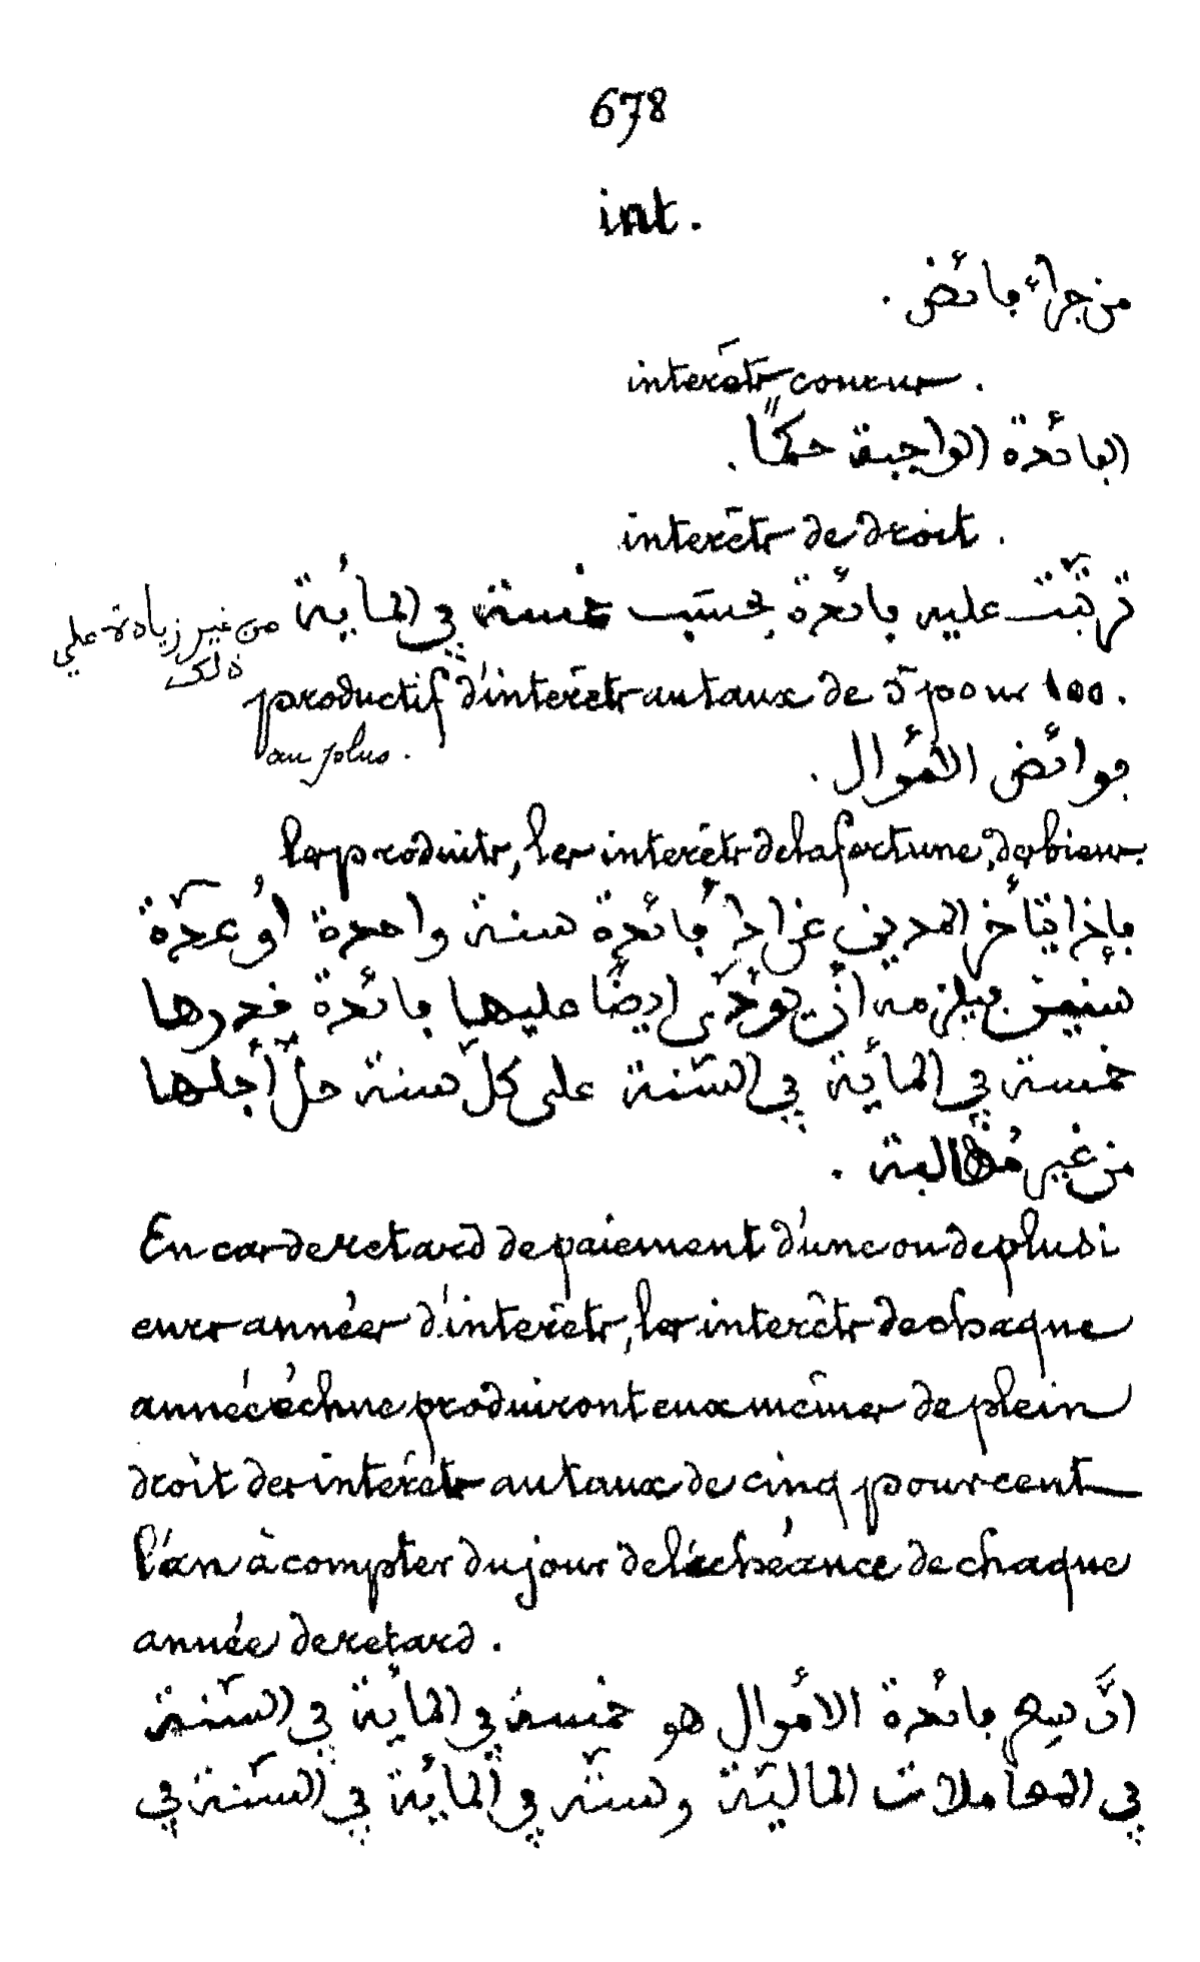 678
int.
من جراء فائض .
intérêts courus .
الفائدة الواجبة حكمًا .
intérêts de droit .
ترتّبت عليه فائدة بحسَب خمسة في المأية من غير زيادة على
ذلك
productif d'intérêts au taux de 5 pour 100 .
au plus .
فوائض الأموال .
les produits, les intérêts de la fortune, des biens .
فإذا تأخر المدين عن اداء فائدة سنة واحدة أو عدّة
سنين فيلزمه أن يؤدّى ايضًا عليها فائدة قدرها
خمسة في المأية في السّنة على كلّ سنة حلّ أجلها
من غير مُطالبة .
En cas de retard de paiement d'une ou de plusi
eurs années d'intérêts, les intérêts de chaque
année échue produiront eux mêmes de plein
droit des intérêts au taux de cinq pour cent
l'an à compter du jour de l'échéance de chaque
année de retard .
انّ فائدة الأموال هو خمسة في المأية في السّنة
في المعاملات الماليّة وستّة في المأية في السّنة في